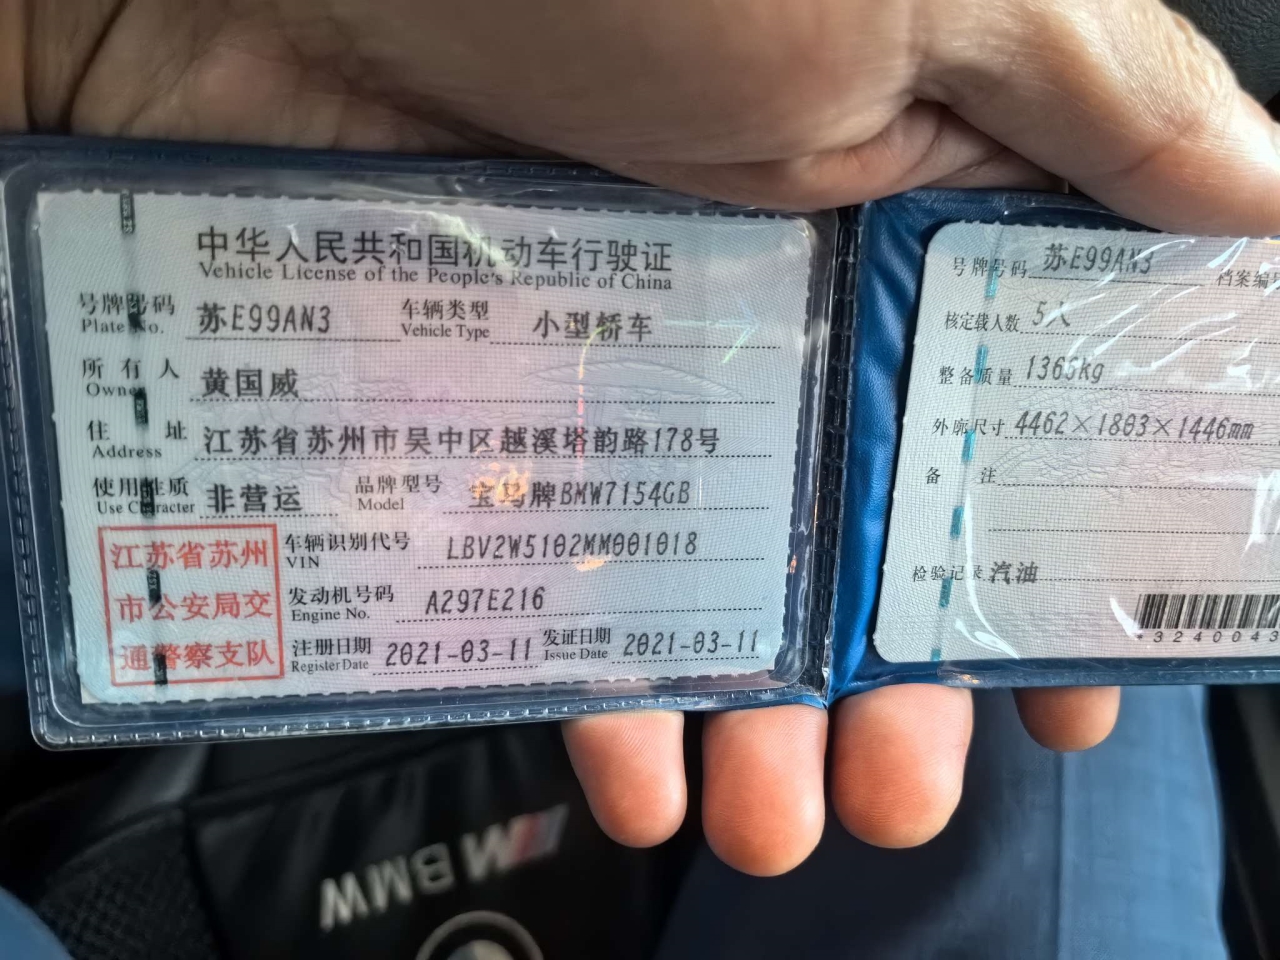 中华人民共和国机动车行驶证
Vehicle License of the People's Republic of China
号牌号码 苏E99AN3 车辆类型 小型轿车
Plate No. Vehicle Type
所有人 黄国威
Owner
住址 江苏省苏州市吴中区越溪塔韵路178号
Address
使用性质 非营运 品牌型号 宝马牌BMW7154GB
Use Character Model
江苏省苏州
市公安局交
通警察支队
车辆识别代号 LBV2W5102MM001018
VIN
发动机号码 A297E216
Engine No.
注册日期 2021-03-11 发证日期 2021-03-11
Register Date Issue Date
号牌号码 苏E99AN3 档案编号
核定载人数 5人
整备质量 1365kg
外廓尺寸 4462×1803×1446mm
备注
检验记录 汽油
*3240043
BMW M